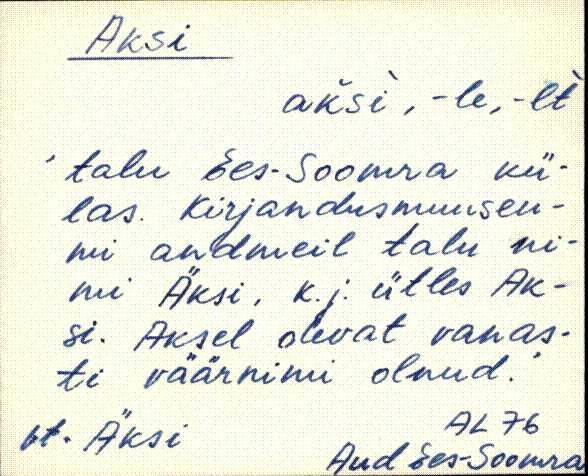 Aksi
akšì, -le, -lt
'talu Ees-Soomra kü-
las. Kirjandusmuuseu-
mi andmeil talu ni-
mi Äksi, k.j. ütles Ak-
si. Aksel olevat vanas-
ti väärnimi olnud.'
vt. Äksi
AL 76
Aud Ees-Soomra